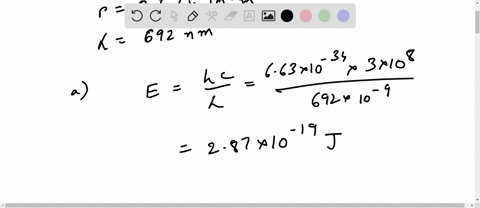 λ = 692 nm
a) E = hc/λ = 6.63×10^-34 × 3×10^8 / 692×10^-9
= 2.87×10^-19 J